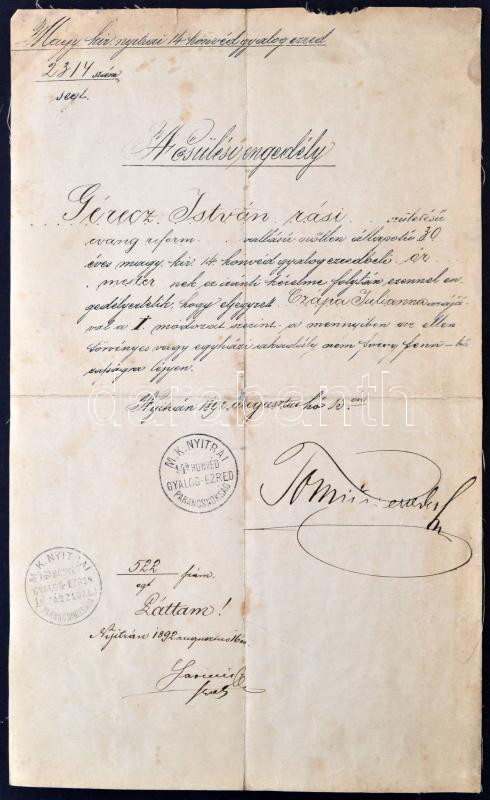 Magy. kir. nyitrai 14 honvéd gyalog ezred
2314 szám
segt.
Nősülési engedély
Gérecz István rási születésű
evang reform vallású nőtlen állapotú 30
éves magy. kir. 14 honvéd gyalog ezredbeli őr
mester nek az iránti kérelme folytán ezennel en
gedélyeztetik, hogy eljegyzett Czápa Julianna
val a I módozat szerint a mennyiben az ellen
törvényes vagy egyházi akadály nem forog fenn - há
zasságra lépjen.
Nyitrán 1892 augusztus hó
M. K. NYITRAI
14ik HONVÉD
GYALOG-EZRED
PARANCSNOKSÁG
M. K. NYITRAI
HONVÉD
GYALOG-EZRED
ZÁSZLÓALJ
PARANCSNOKSÁG
522 szám.
Láttam!
Nyitrán 1892 augusztus 16án
darabanth